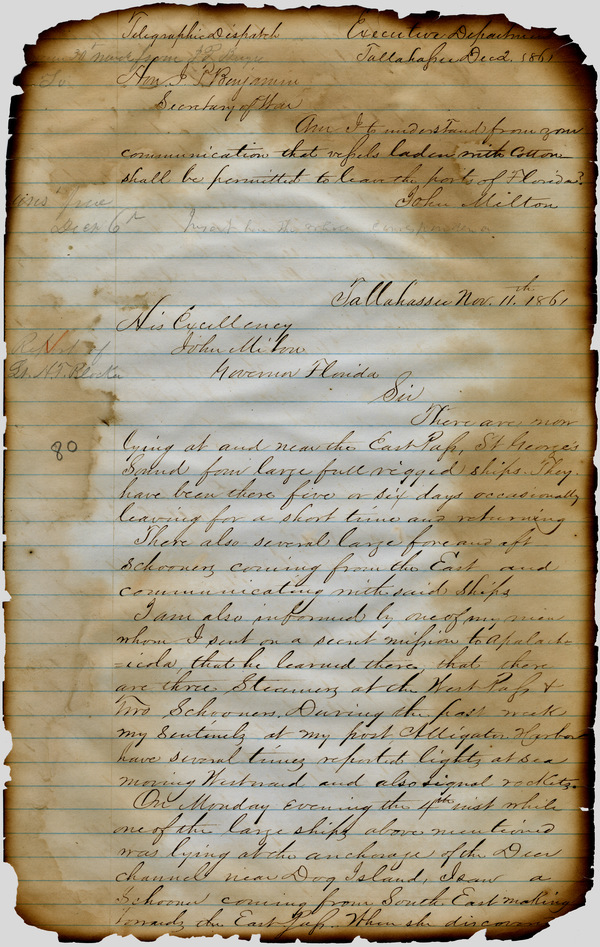 Telegraphic Dispatch Executive Departmen
Tallahassee Dec 2. 1861
Hon J. P. Benjamin
Secretary of War
Am I to understand from your
communication that vessels laden with Cotton
shall be permitted to leave the ports of Florida?
John Milton
Decr 6th Insert here the
Tallahassee Nov. 11.th 1861
His Excellency
John Milton
Governor Florida
Report of
Lt. N. T. Blocker
Sir
There are now
80
lying at and near the East Pass, St George's
Sound four large full rigged ships. They
have been there five or six days occasionally
leaving for a short time and returning
There also several large fore and aft
schooners coming from the East and
communicating with said Ships
I am also informed by one of my men
whom I sent on a secret mission to Apalach
=icola, that he learned there, that there
are three Steamers at the West Pass &
two Schooners. During the past week
my Sentinels at my post Alligator Harbor
have several times reported lights at sea
moving Westward and also signal rockets.
On Monday evening the 4th inst while
one of the large ships above mentioned
was lying at the anchorage of the Deer
channel near Dog Island, I saw a
Schooner coming from South East making
towards the East Pass. When she discover